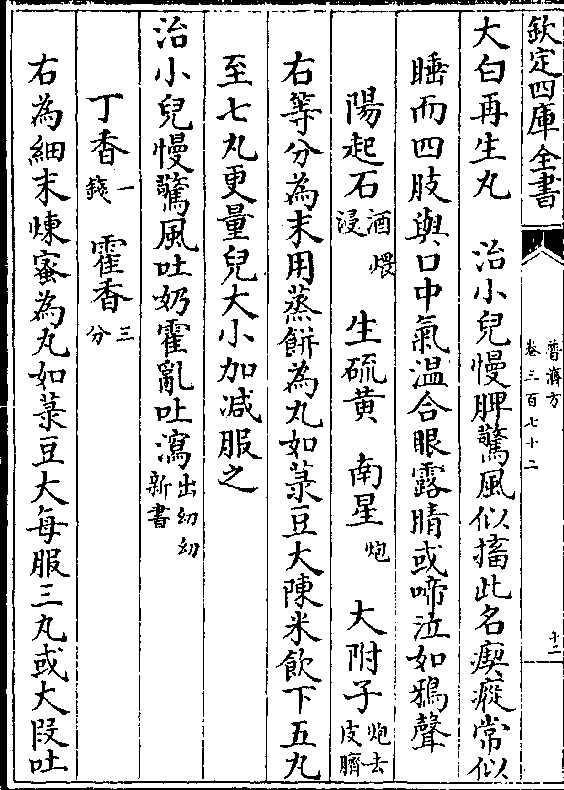 欽定四庫全書
普濟方
卷三百七十二
十二
大白再生丸　治小兒慢脾驚風似搐此名瘈瘲常似
睡而四肢與口中氣温合眼露睛或啼泣如鴉聲
陽起石酒煨浸　生硫黄　南星炮　大附子炮去皮臍
右等分為末用蒸餅為丸如菉豆大陳米飲下五丸
至七丸更量兒大小加減服之
治小兒慢驚風吐奶霍亂吐瀉出幼幼新書
丁香一錢　霍香三分
右為細末煉蜜為丸如菉豆大每服三丸或大段吐